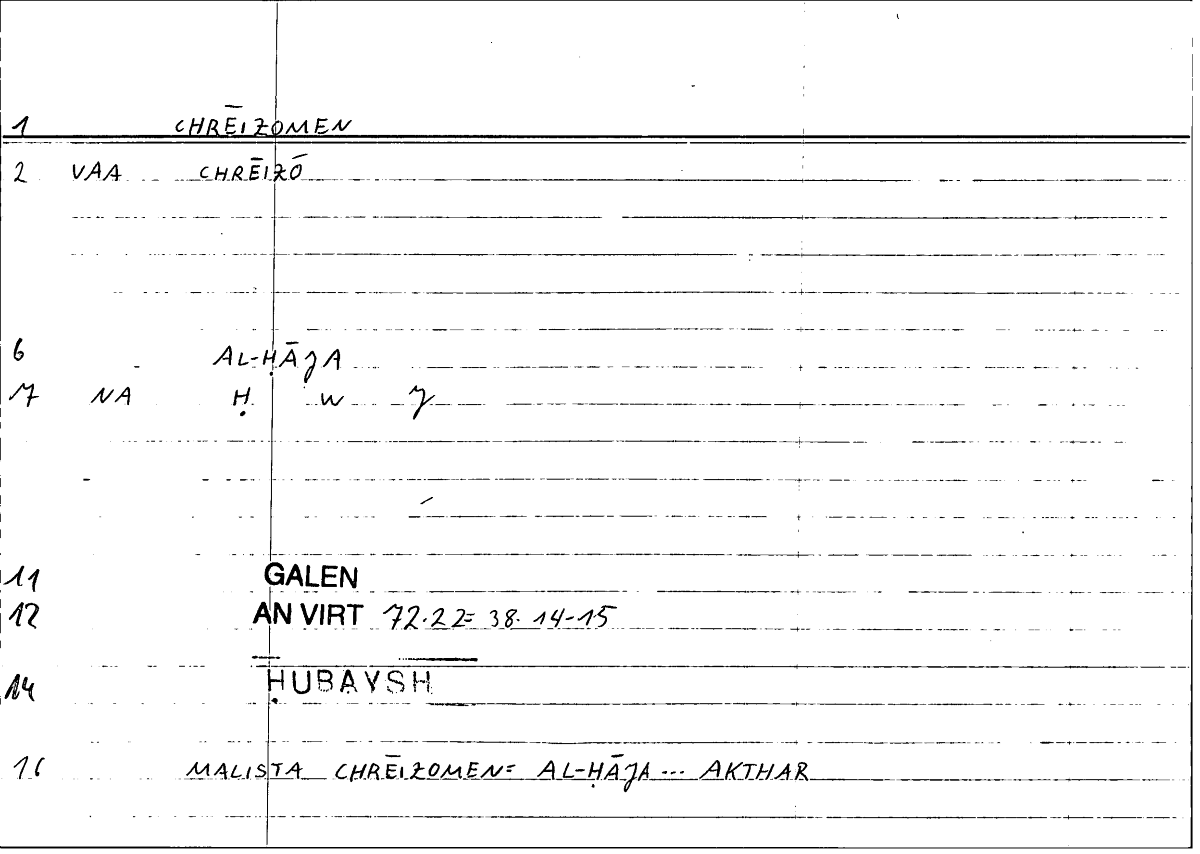 1 CHRĒIZOMEN
2 VAA CHRĒIZŌ
6 AL-ḤĀJA
7 NA Ḥ W J
11 GALEN
12 AN VIRT 72.22= 38.14-15
14 ḤUBAYSH
16 MALISTA CHRĒIZOMEN= AL-ḤĀJA ... AKTHAR